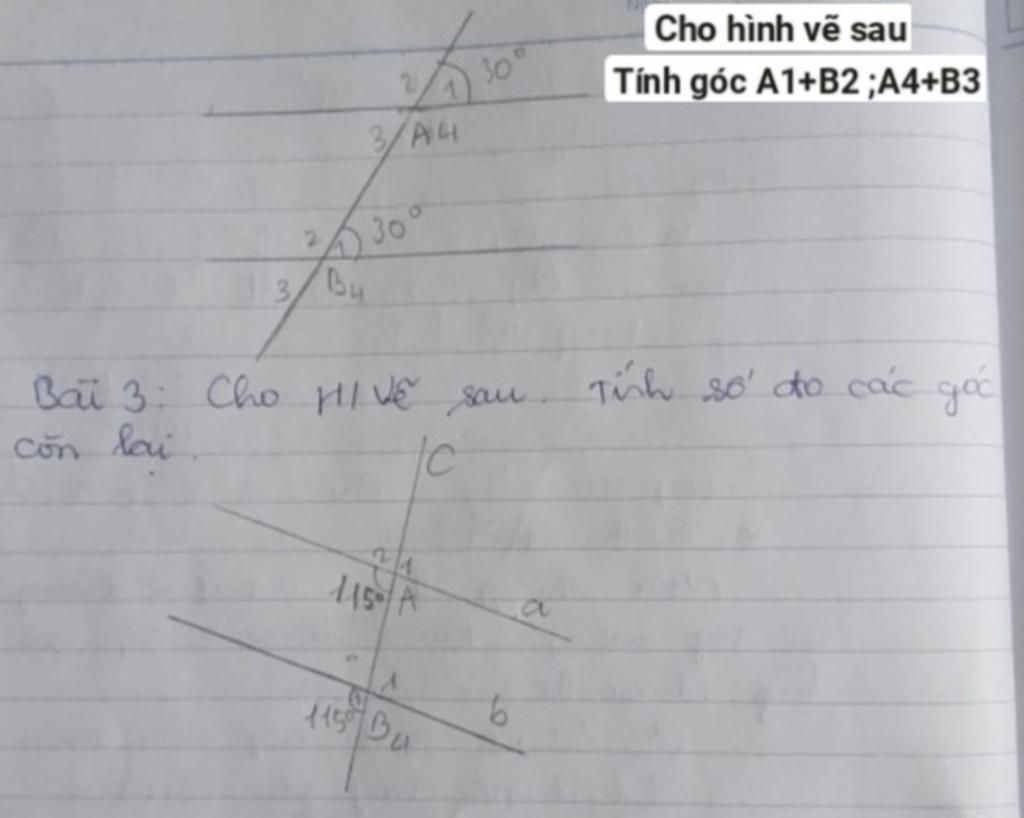 Cho hình vẽ sau
Tính góc A1+B2 ;A4+B3
2 1 30°
3 A 4
2 1 30°
3 B 4
Bài 3: Cho H/vẽ sau. Tính số đo các góc
còn lại.
C
2 1
115° A
a
1
3
115° B 4
b